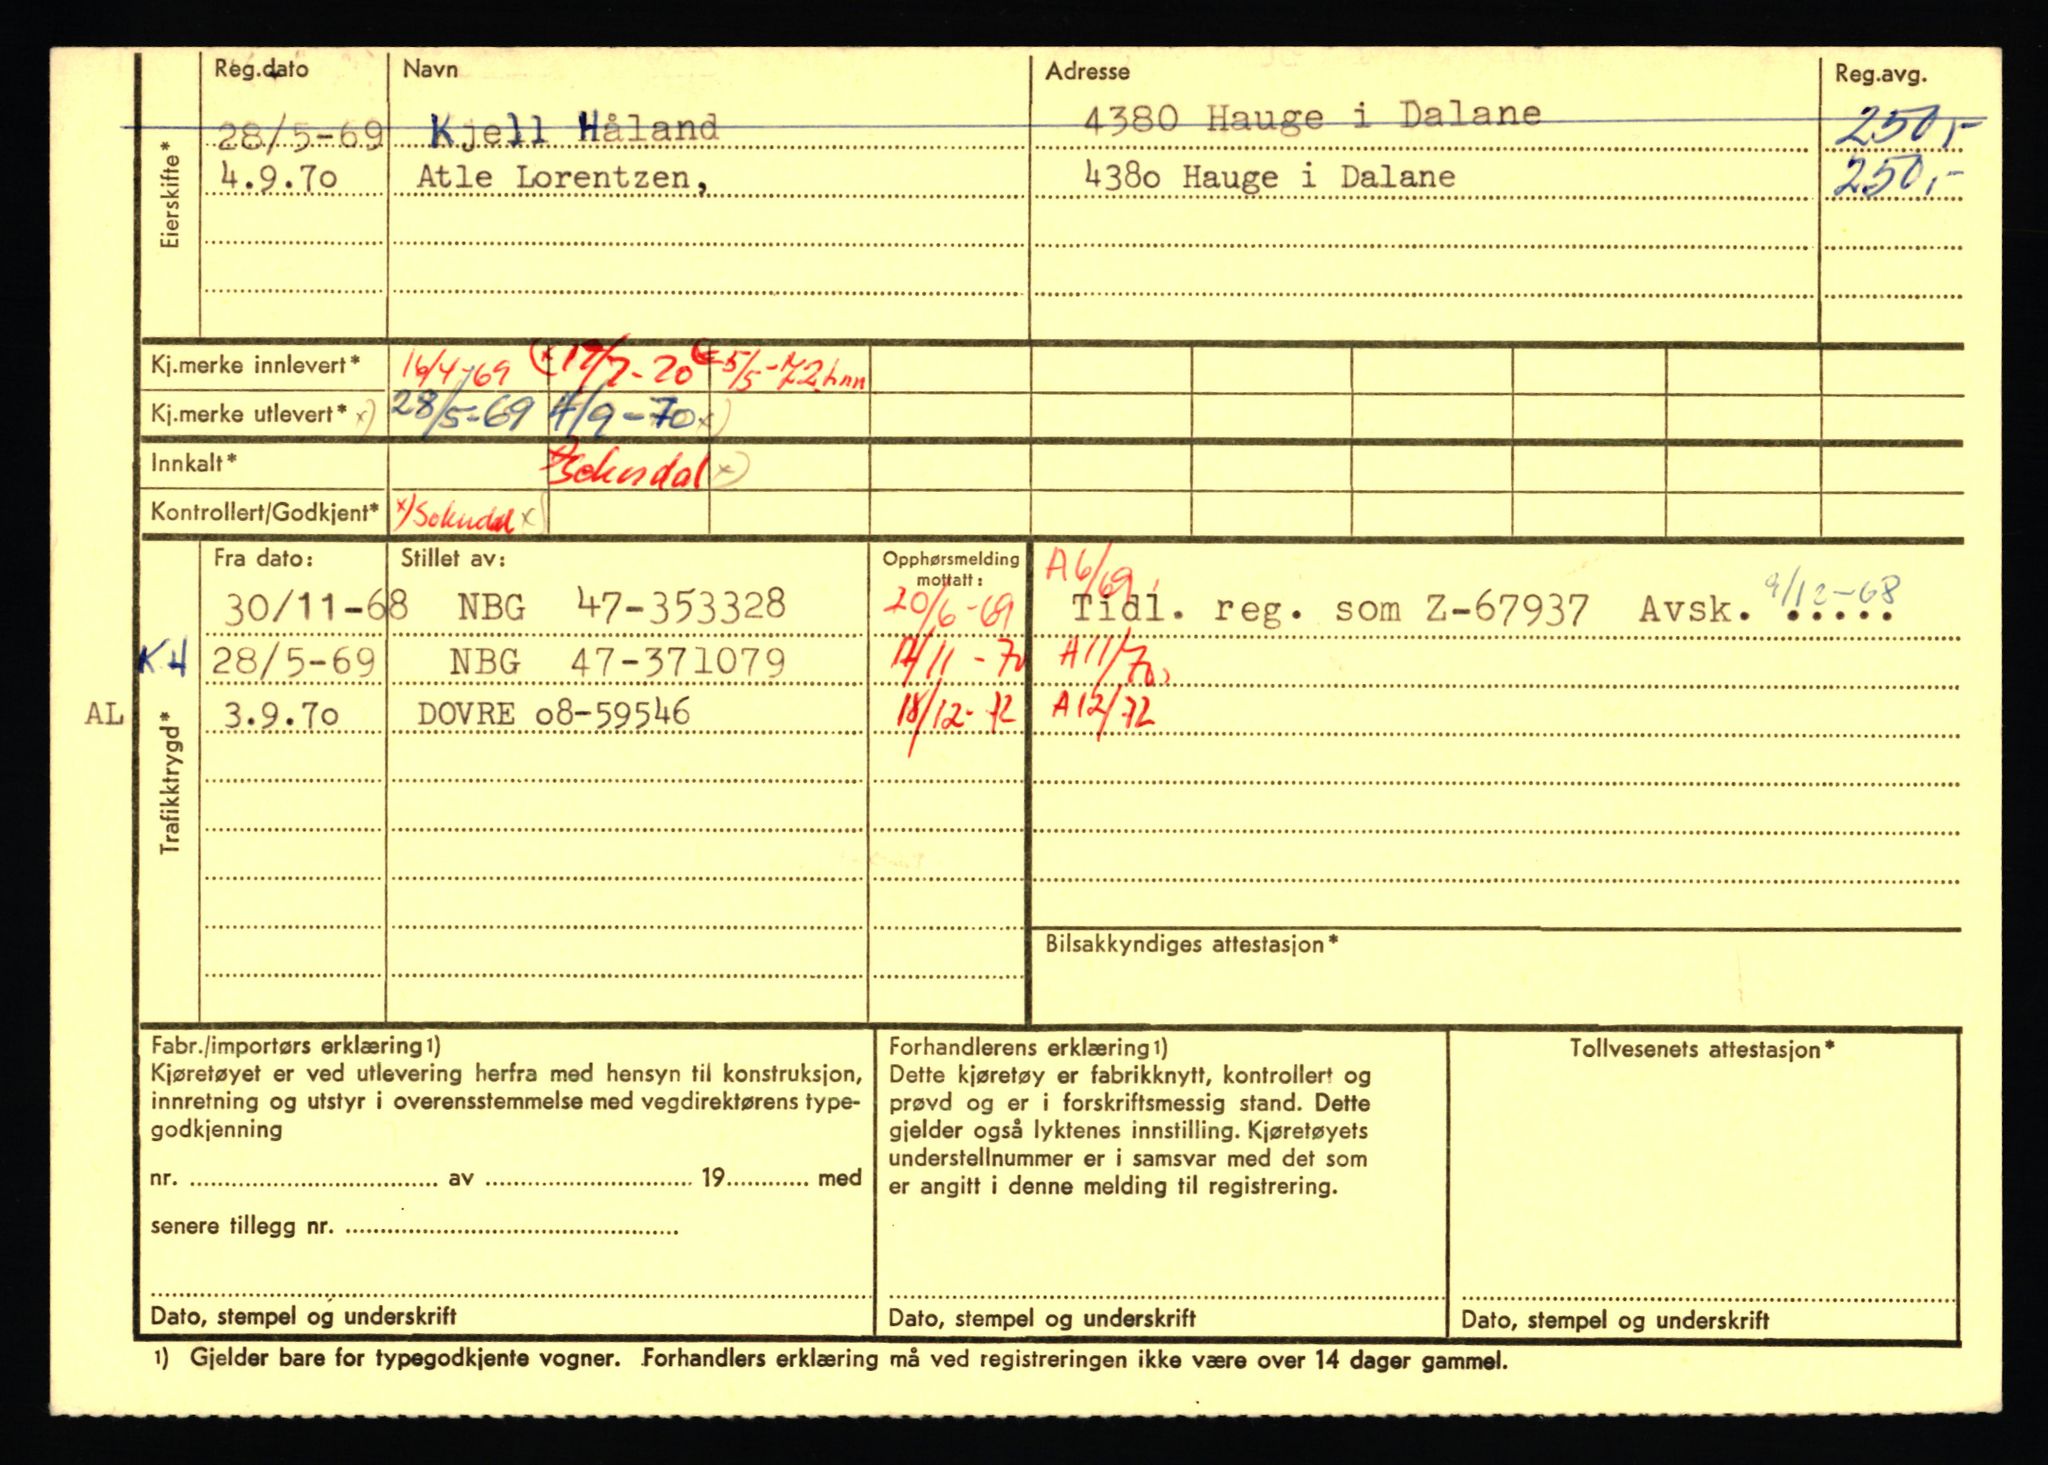 Reg.dato Navn Adresse Reg.avg.
Eierskifte*
28/5-69 Kjell Håland 4380 Hauge i Dalane 250,-
4.9.7o Atle Lorentzen, 438o Hauge i Dalane 250,-
Kj.merke innlevert* 16/4-69 (x 17/7-70 5/5-72
Kj.merke utlevert* x) 28/5-69 4/9-70 x)
Innkalt* Sokndal x)
Kontrollert/Godkjent* x) Sokndal x)
Trafikktrygd*
Fra dato: Stillet av: Opphørsmelding mottatt: A6/69
30/11-68 NBG 47-353328 20/6-69 Tidl. reg. som Z-67937 Avsk. 9/12-68
KH 28/5-69 NBG 47-371079 17/11-70 A11/70
AL 3.9.7o DOVRE o8-59546 18/12-72 A12/72
Bilsakkyndiges attestasjon*
Fabr./importørs erklæring1)
Kjøretøyet er ved utlevering herfra med hensyn til konstruksjon,
innretning og utstyr i overensstemmelse med vegdirektørens type-
godkjenning
nr. .................... av .................... 19............ med
senere tillegg nr. ....................
Dato, stempel og underskrift
Forhandlerens erklæring1)
Dette kjøretøy er fabrikknytt, kontrollert og
prøvd og er i forskriftsmessig stand. Dette
gjelder også lyktenes innstilling. Kjøretøyets
understellnummer er i samsvar med det som
er angitt i denne melding til registrering.
Dato, stempel og underskrift
Tollvesenets attestasjon*
Dato, stempel og underskrift
1) Gjelder bare for typegodkjente vogner. Forhandlers erklæring må ved registreringen ikke være over 14 dager gammel.